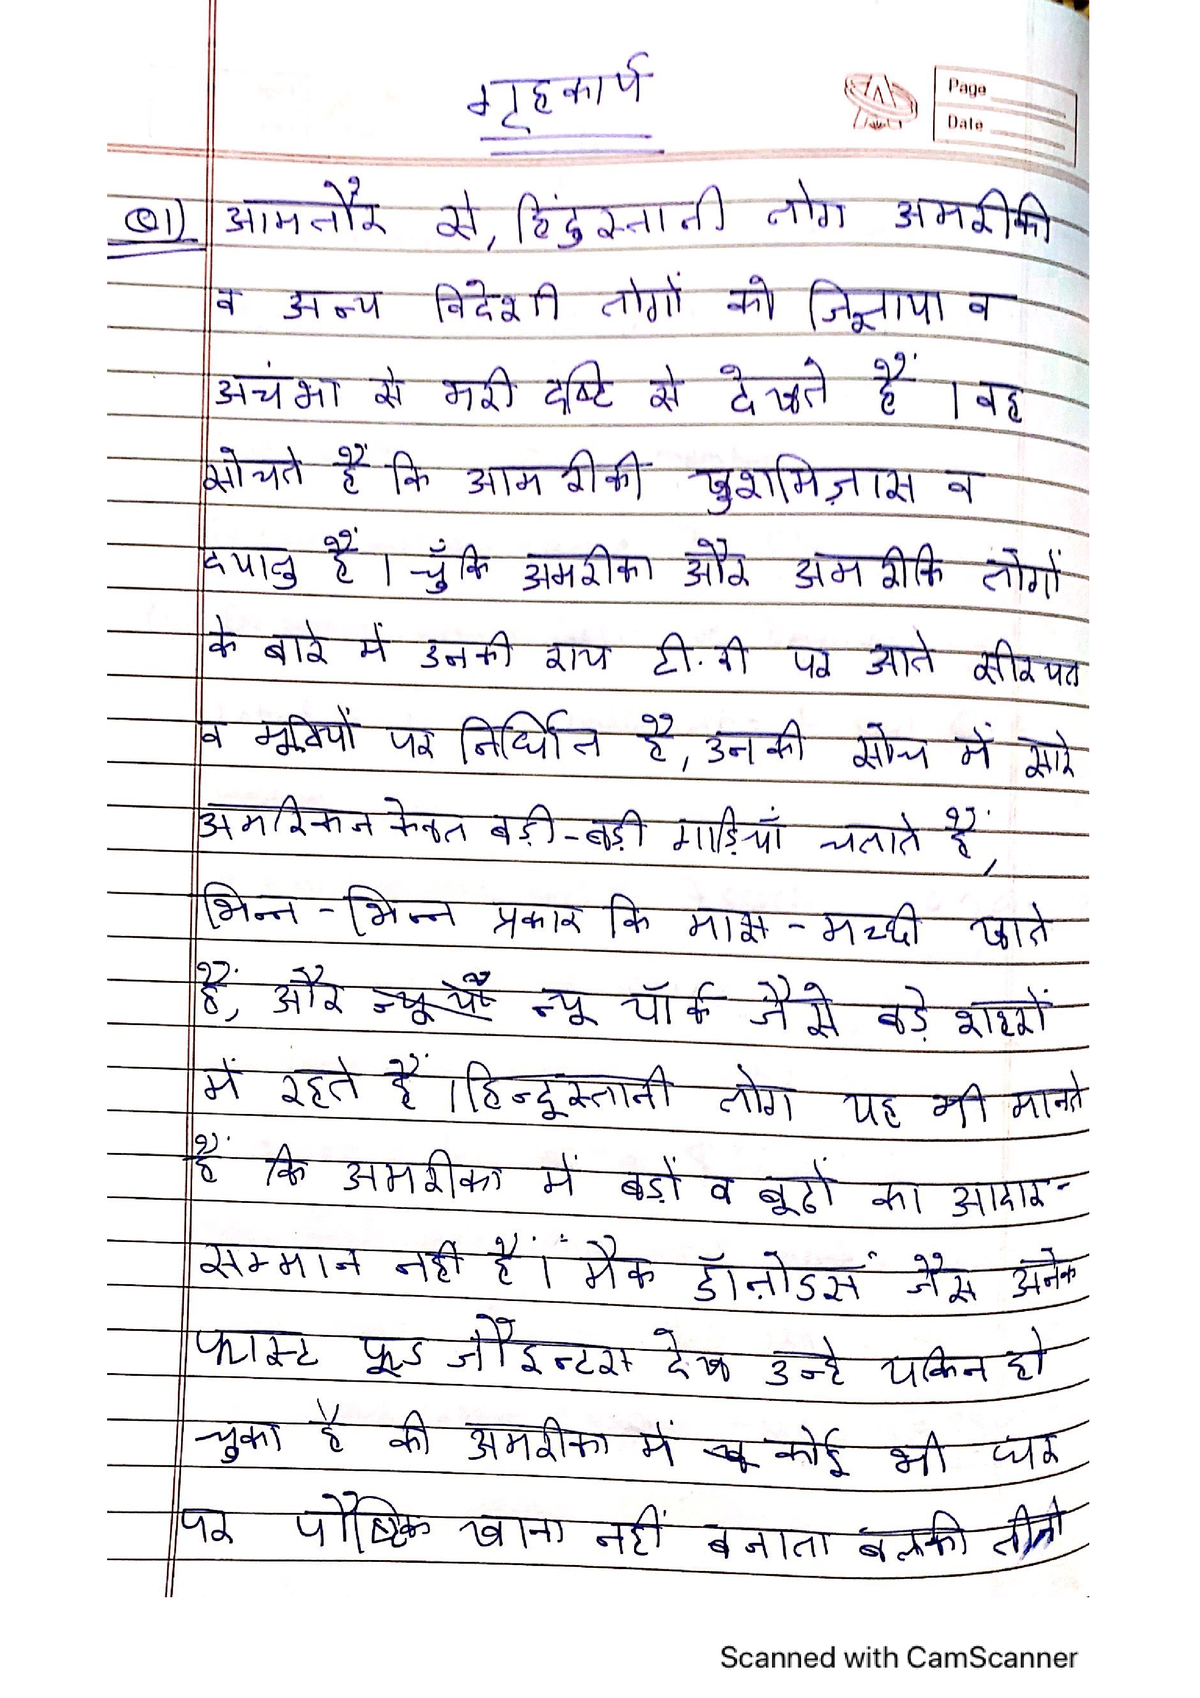 गृहकार्य
Page
Date
Q1) आमतौर से, हिंदुस्तानी लोग अमरीकी
व अन्य विदेशी लोगों को जिज्ञापा व
अचंभा से भरी दृष्टि से देखते हैं । वह
सोचते हैं कि आमरीकी खुशमिज़ास व
दयालु हैं । चुँकि अमरीका और अमरीकि लोगों
के बारे में उनकी राय टी.वी पर आते सीरयल
व मूवियों पर है, उनकी सोच में सारे
अमरिकन केवल बड़ी-बड़ी गाड़ियाँ चलाते हैं,
भिन्न-भिन्न प्रकार कि मास-मच्छी खाते
हैं, और न्यू यॉर्क जैसे बड़े शहरों
में रहते हैं । हिन्दूस्तानी लोग यह भी मानते
हैं कि अमरीका में बड़ों व बूढों का आदार-
सम्मान नहीं हैं । मैक डॉनोडस जैस अनेक
फास्ट फूड जौइन्टस देख उन्हे यकिन हो
चुका है की अमरीका में कोई भी घर
पर पौष्टिक खाना नहीं बनाता बलकी
Scanned with CamScanner